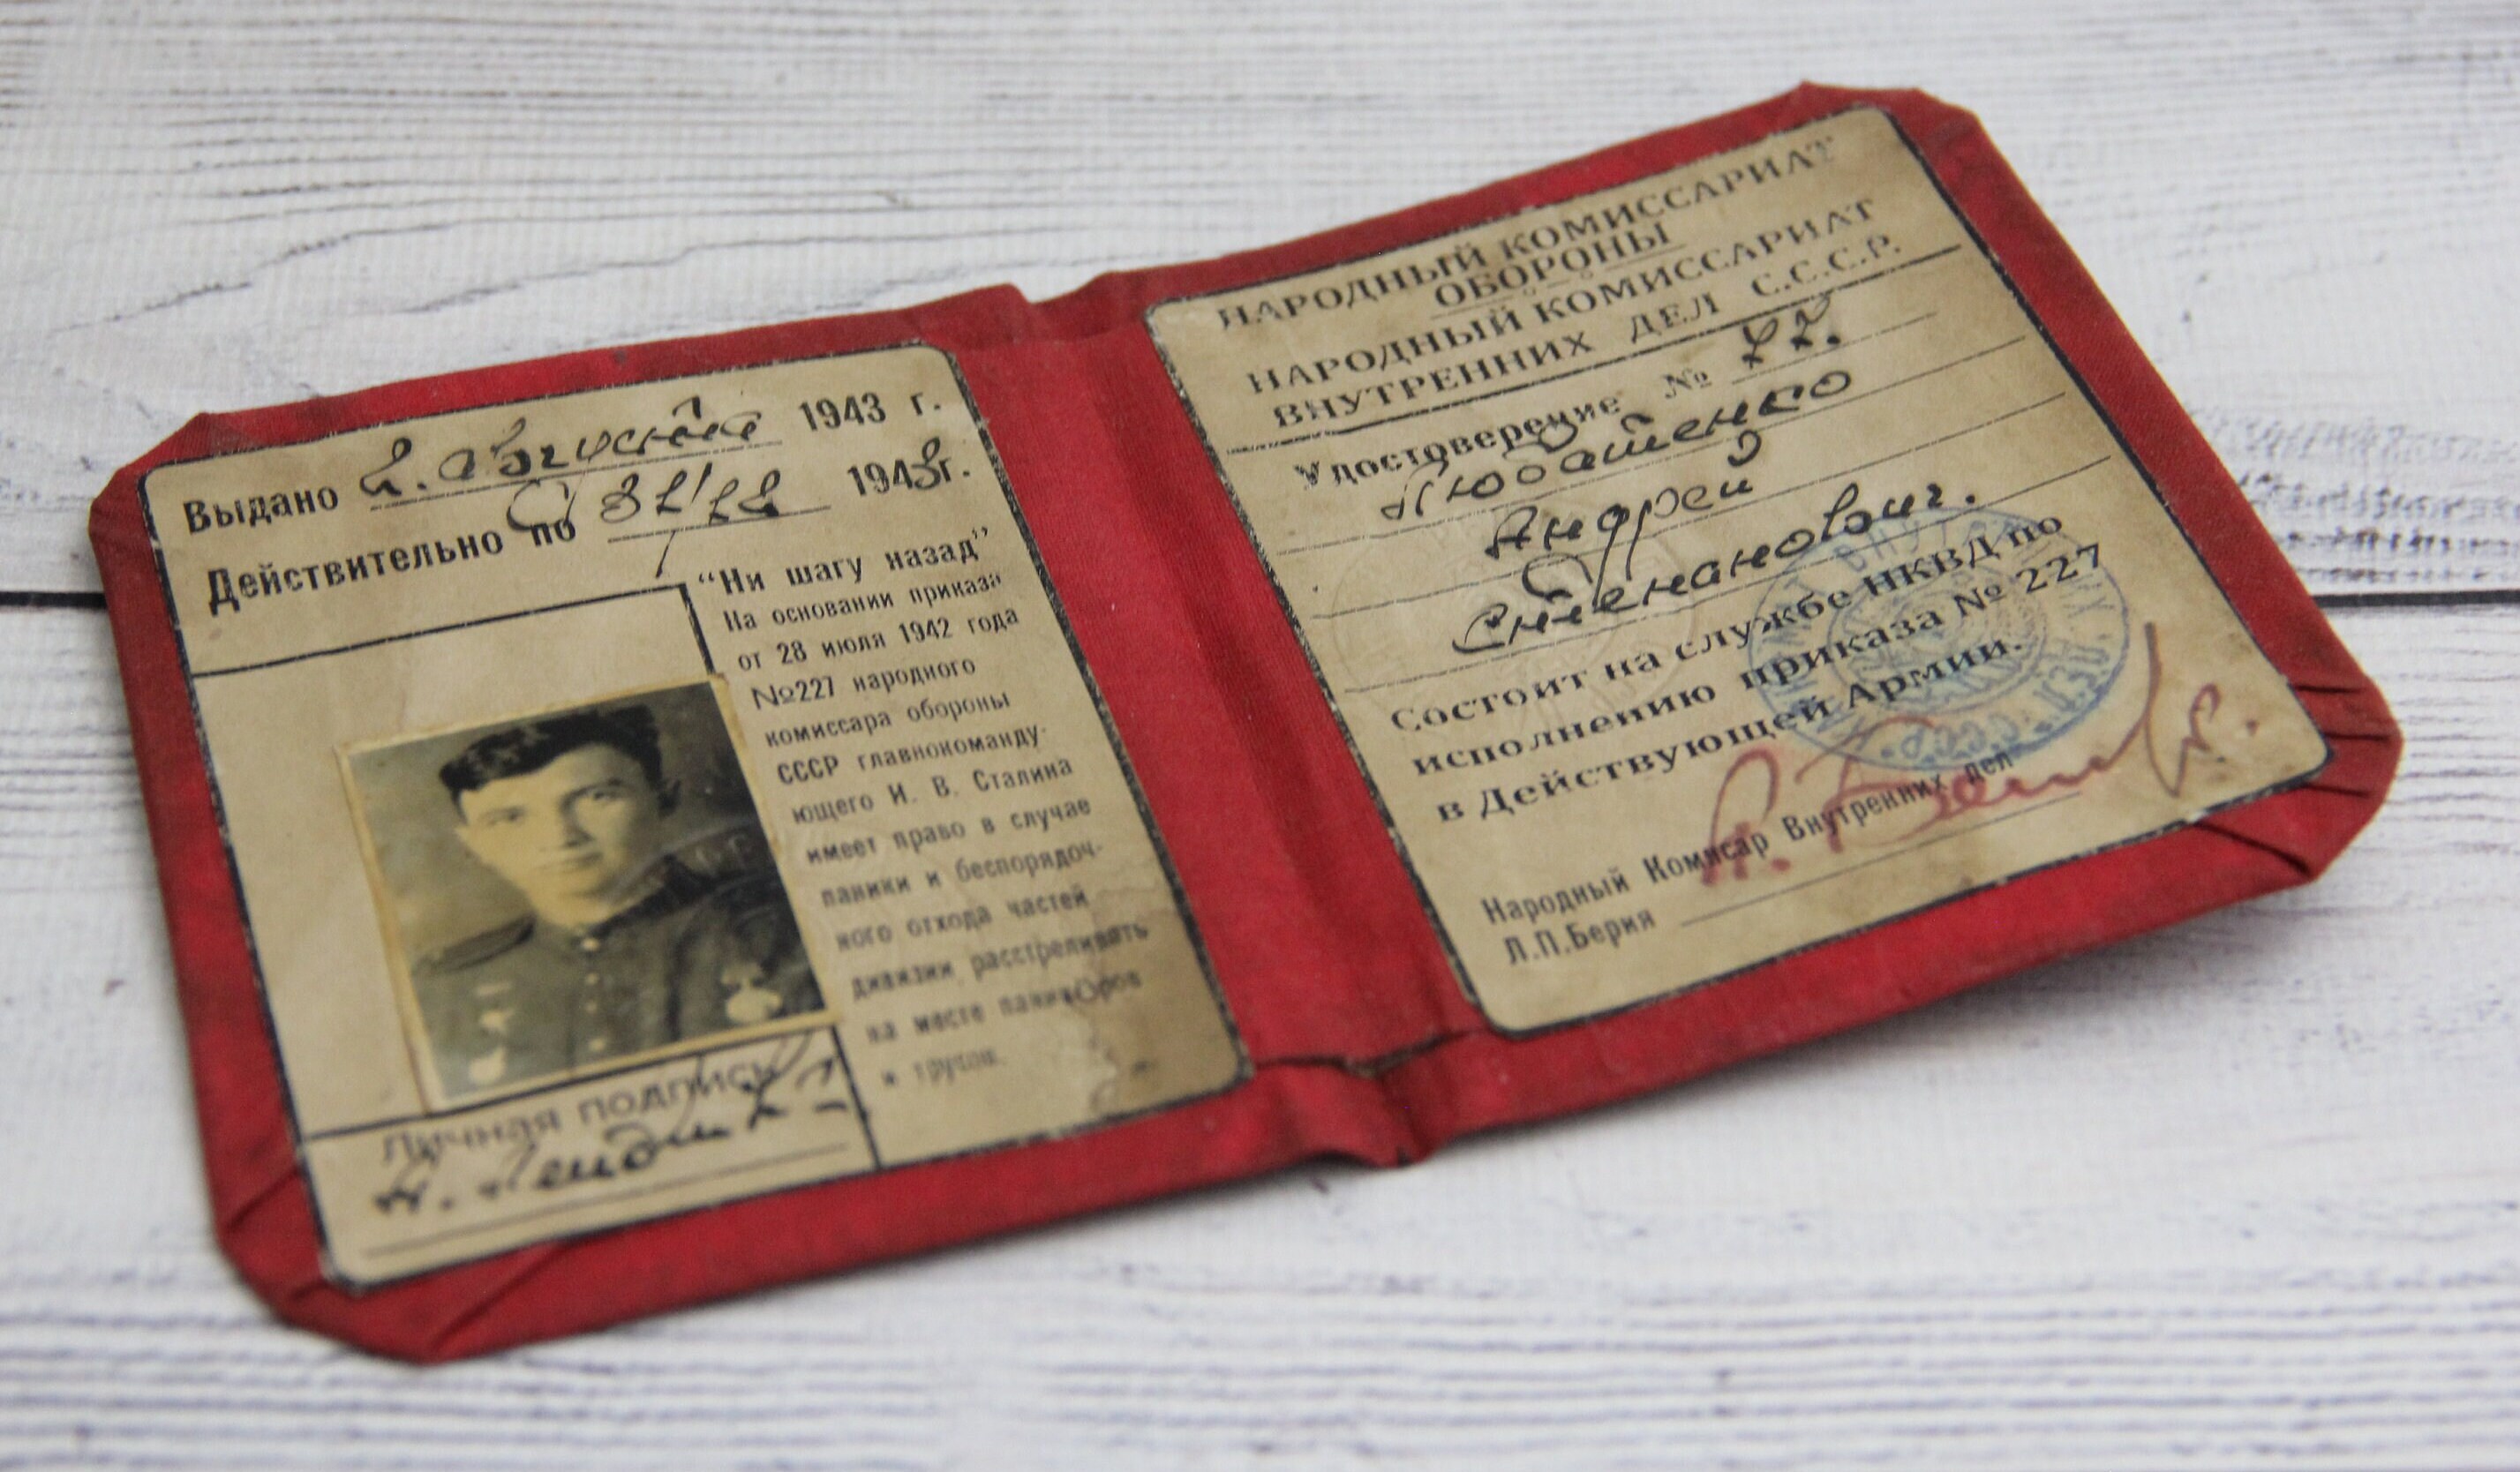 Выдано 2. Августа 1943 г.
Действительно по 31/12 1943 г.
"Ни шагу назад"
На основании приказа
от 28 июля 1942 года
№227 народного
комиссара обороны
СССР главнокоманду-
ющего И. В. Сталина
имеет право в случае
паники и беспорядоч-
ного отхода частей
дивизии расстреливать
на месте паникёров
и трусов.
Личная подпись
НАРОДНЫЙ КОМИССАРИАТ
ОБОРОНЫ
НАРОДНЫЙ КОМИССАРИАТ
ВНУТРЕННИХ ДЕЛ С.С.С.Р.
Удостоверение №
Андрей
Степанович.
Состоит на службе НКВД по
исполнению приказа № 227
в Действующей Армии.
Народный Комисар Внутренних дел
Л.П.Берия